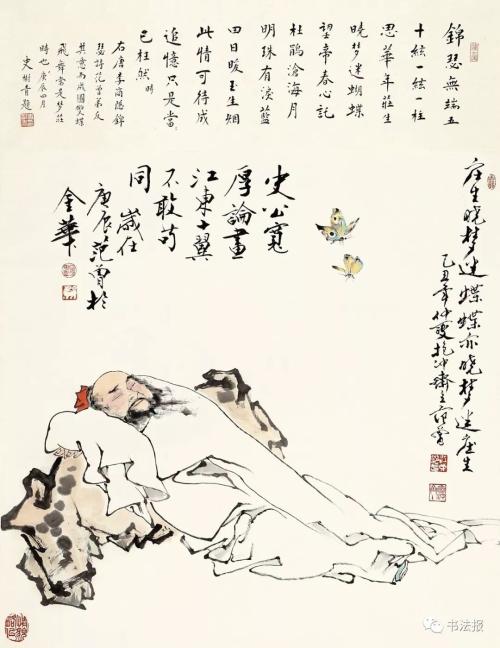 錦瑟無端五
十絃一絃一柱
思華年莊生
曉夢迷蝴蝶
望帝春心託
杜鵑滄海月
明珠有淚藍
田日暖玉生烟
此情可待成
追憶只是當
已枉然 時
右唐李商隱錦
瑟詩范曾弟反
其意而成圖雙蝶
飛舞常是夢莊
時也 庚辰四月
史樹青題
庄生晓梦迷蝶蝶亦晓梦迷庄生
乙丑年仲夏抱冲斋主范曾
史公寬
厚論畫
江東十翼
不敢苟
同 歲在
庚辰范曾於
金華
书法报